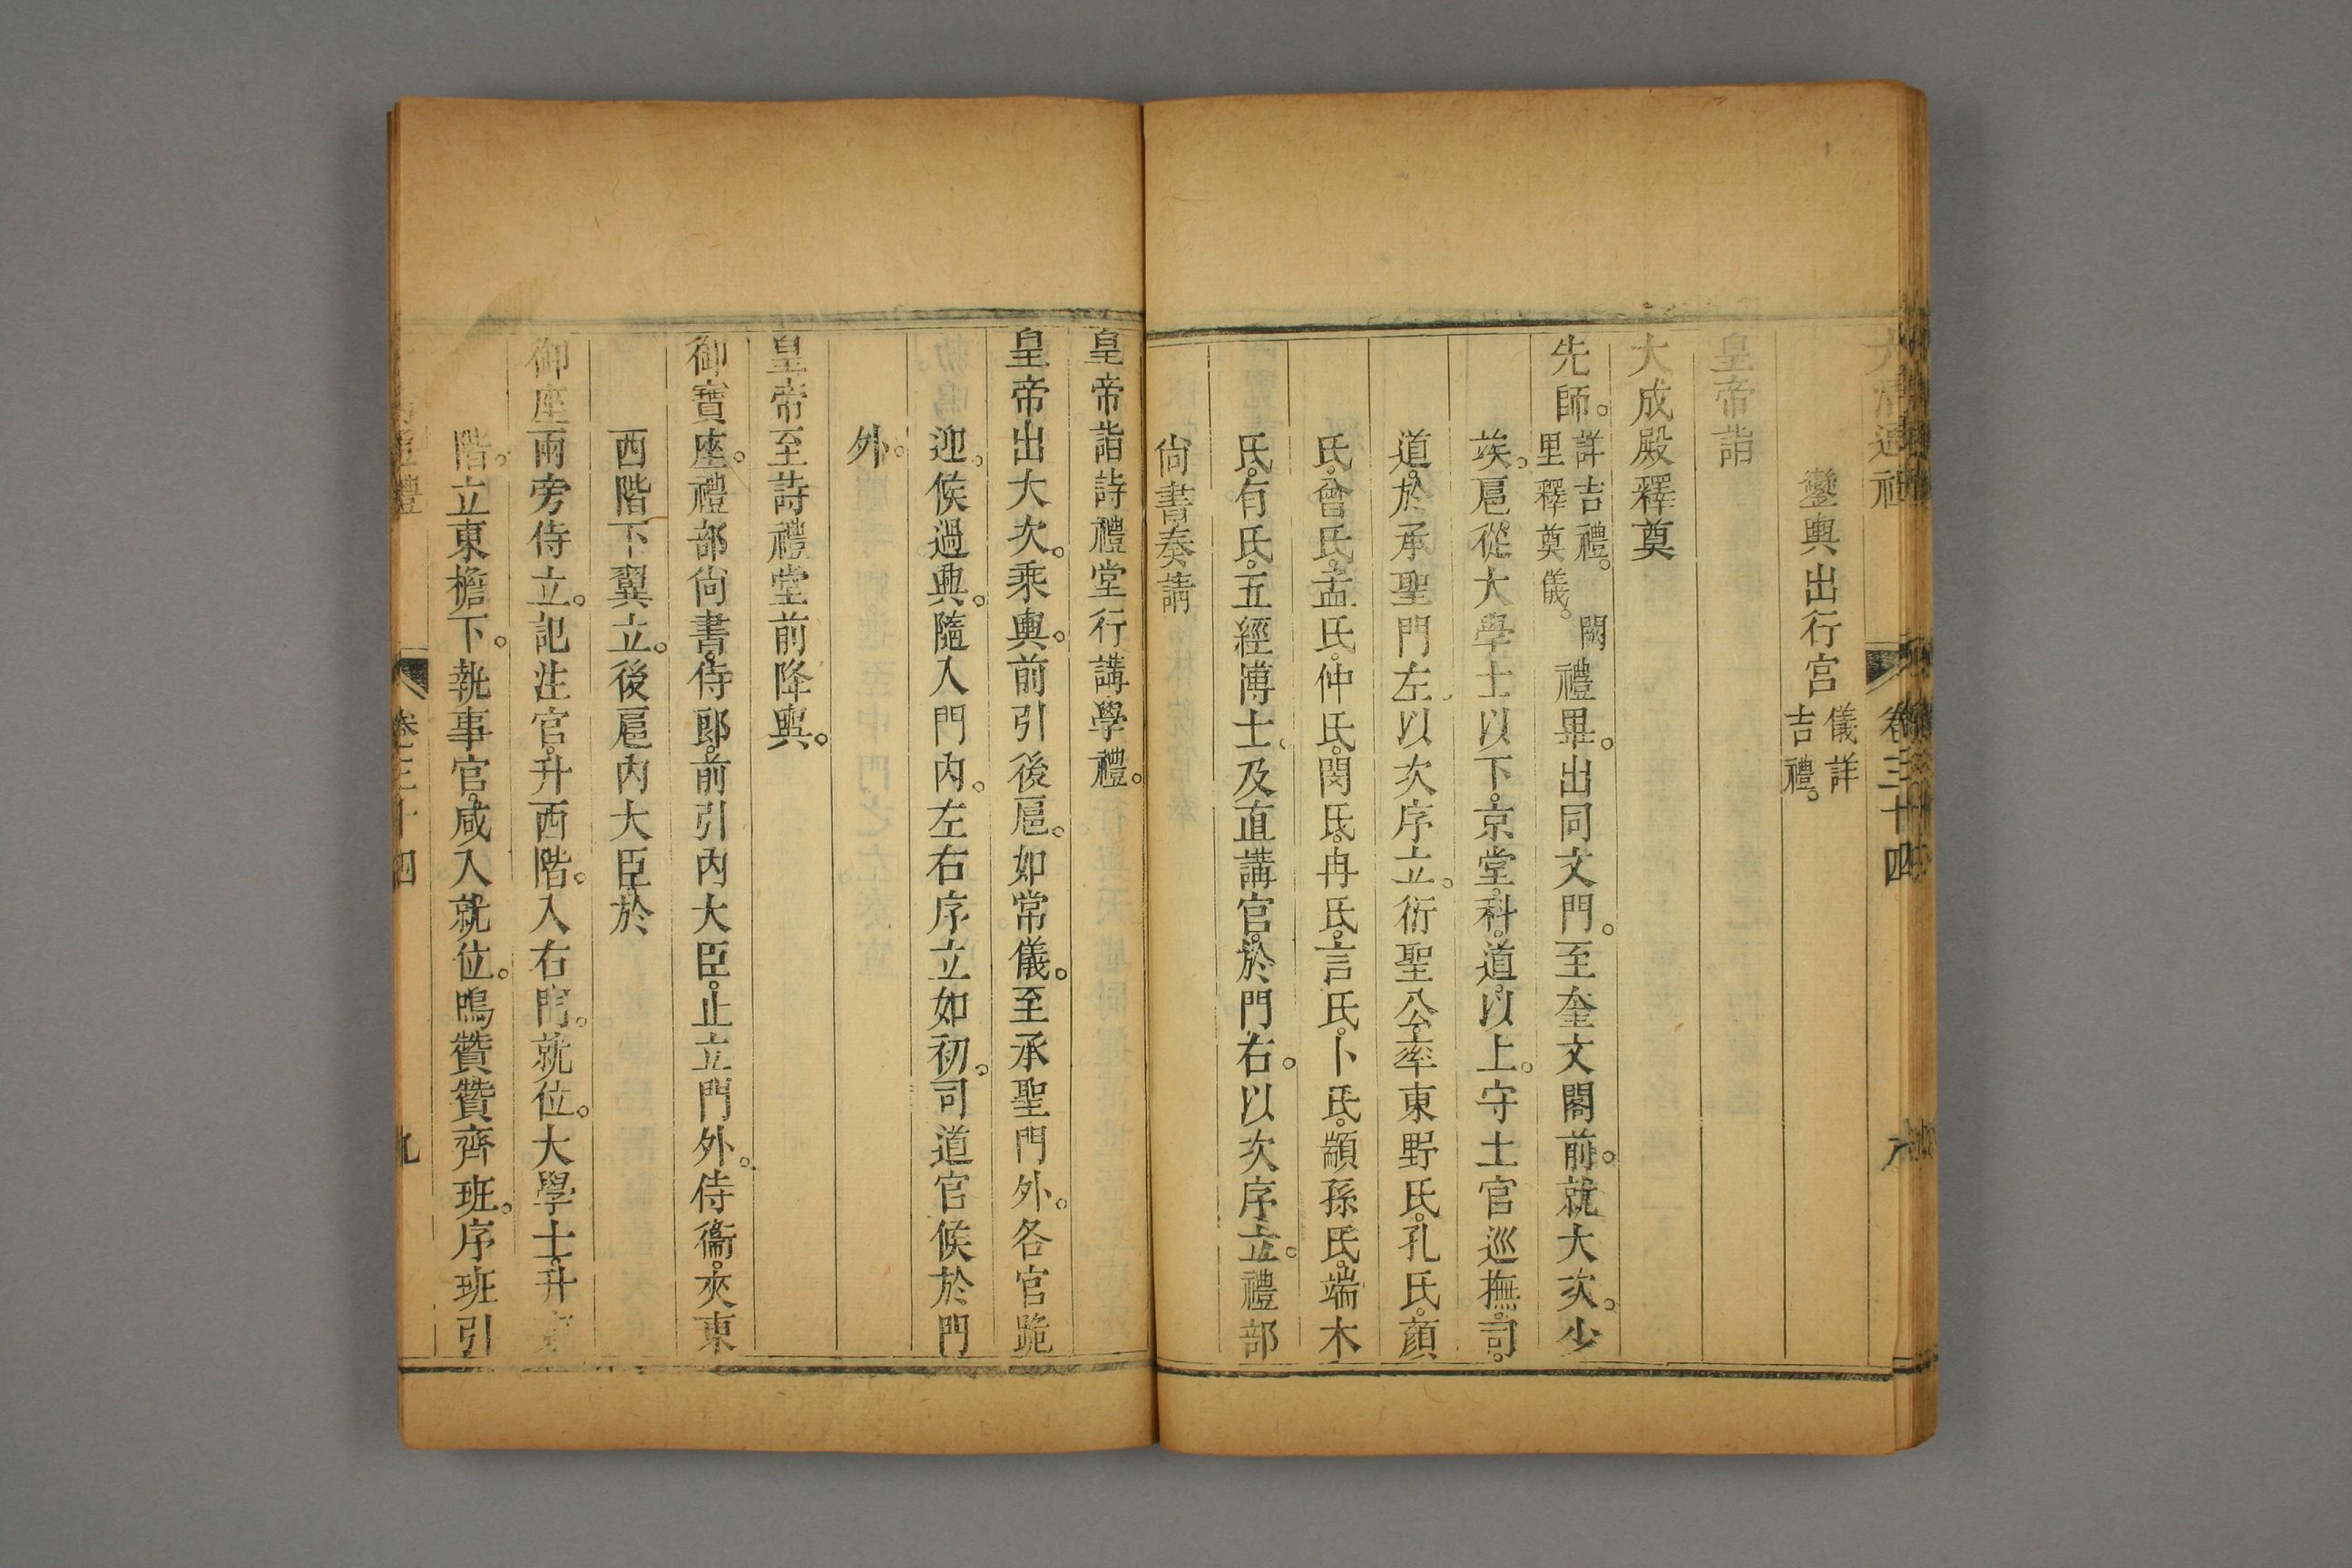 大清通禮 卷三十四
鑾輿出行宫儀詳吉禮。
皇帝詣
大成殿釋奠
先師。詳吉禮。闕里釋奠儀。禮畢。出同文門。至奎文閣前。就大次。少
竢。扈從大學士以下。京堂科道以上。守土官巡撫。司。
道。於承聖門左。以次序立。衍聖公率東野氏。孔氏。顔
氏。曾氏。孟氏。仲氏。閔氏。冉氏。言氏。卜氏。顓孫氏。端木
氏。有氏。五經博士。及直講官。於門右。以次序立。禮部
尙書奏請
皇帝詣詩禮堂行講學禮。
皇帝出大次。乘輿。前引後扈。如常儀。至承聖門外。各官跪
迎。候過輿。隨入門內。左右序立如初。司道官候於門
外。
皇帝至詩禮堂前降輿。
御寶座。禮部尙書。侍郎。前引內大臣。止立門外。侍衞。夾東
西階下翼立。後扈內大臣於
御座兩旁侍立。記注官。升西階。入右門。就位。大學士。升
階。立東檐下。執事官。咸入就位。鳴贊贊齊班。序班引
卷三十四 九